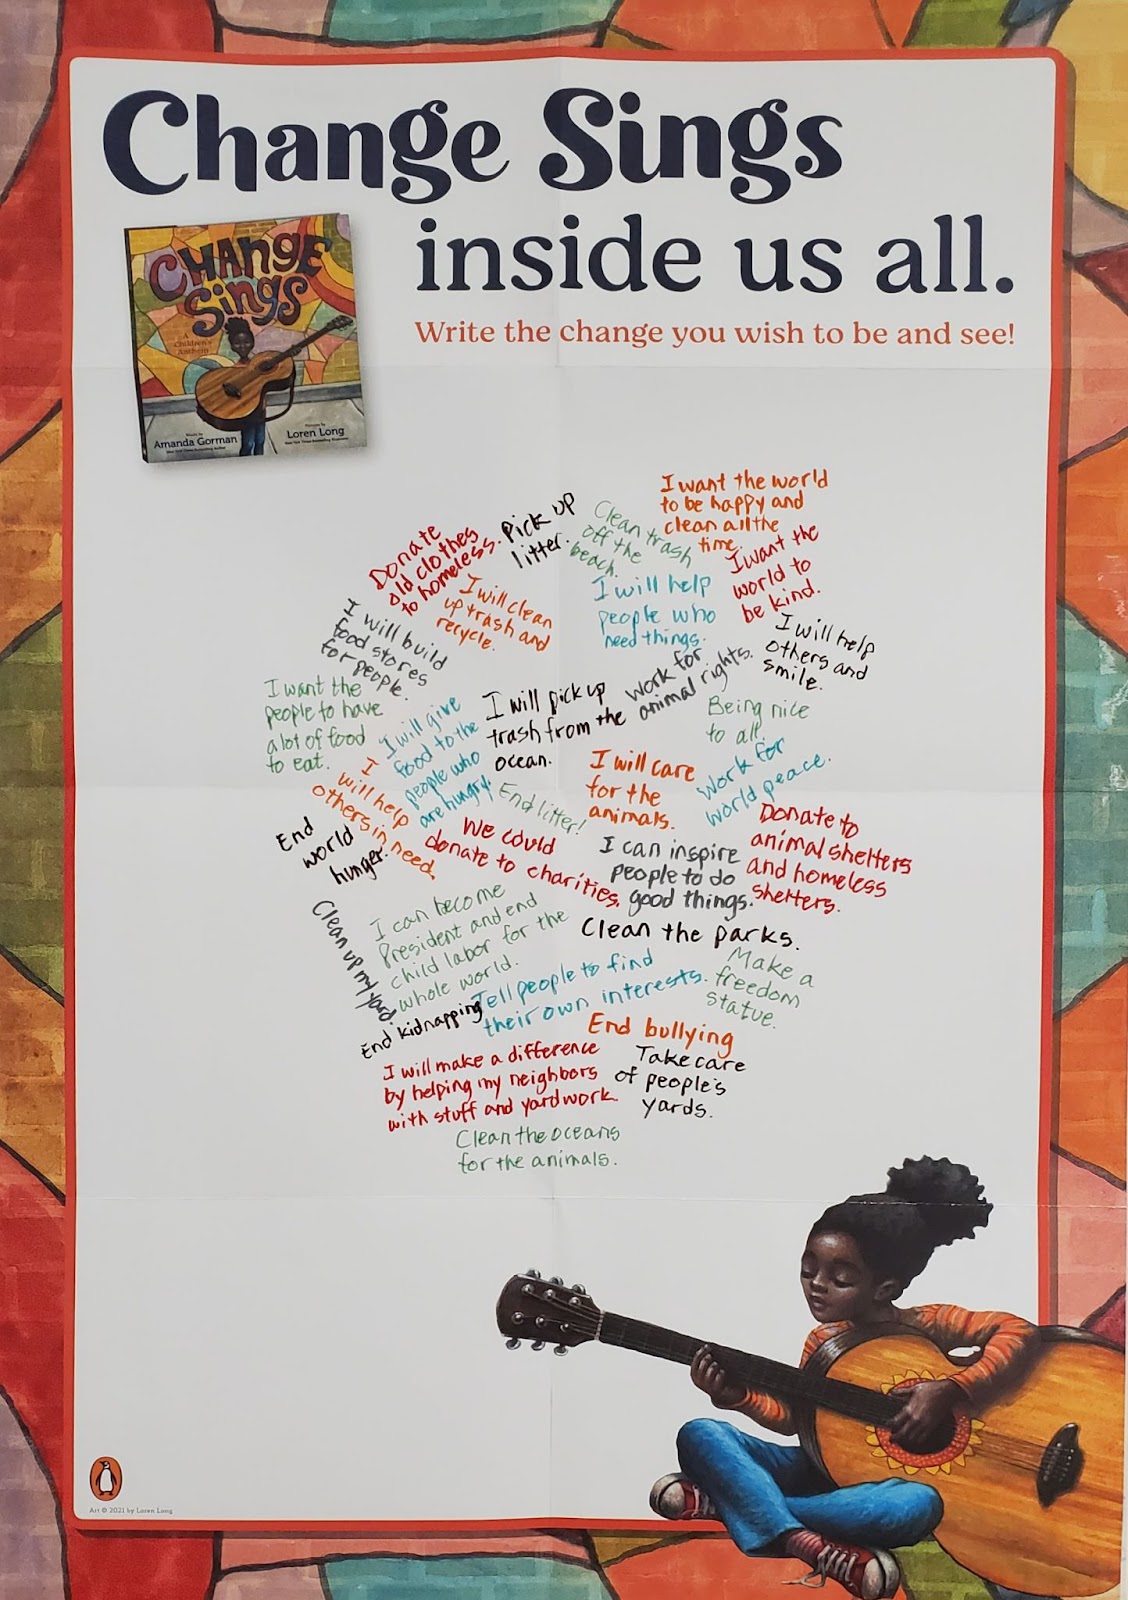 Change Sings
inside us all.
Write the change you wish to be and see!
CHANGE
Sings
A
Children's
Anthem
Words by
Amanda Gorman
Pictures by
Loren Long
I want the world
to be happy and
clean all the
time.
Pick up
litter.
Clean trash
off the
beach.
Donate
old clothes
to homeless.
I want the
world to
be kind.
I will clean
up trash and
recycle.
I will help
people who
need things.
I will build
food stores
for people.
I will help
others and
smile.
Work for
animal rights.
I want the
people to have
a lot of food
to eat.
I will give
food to the
people who
are hungry.
I will pick up
trash from the
ocean.
Being nice
to all.
I
will help
others in need.
I will care
for the
animals.
Work for
world peace.
End litter!
End
world
hunger.
We could
donate to charities.
Donate to
animal shelters
and homeless
shelters.
I can inspire
people to do
good things.
Clean up my yard.
I can become
President and end
child labor for the
whole world.
Clean the parks.
Tell people to find
their own interests.
Make a
freedom
statue.
End kidnapping
End bullying
I will make a difference
by helping my neighbors
with stuff and yardwork.
Take care
of people's
yards.
Clean the oceans
for the animals.
Art © 2021 by Loren Long